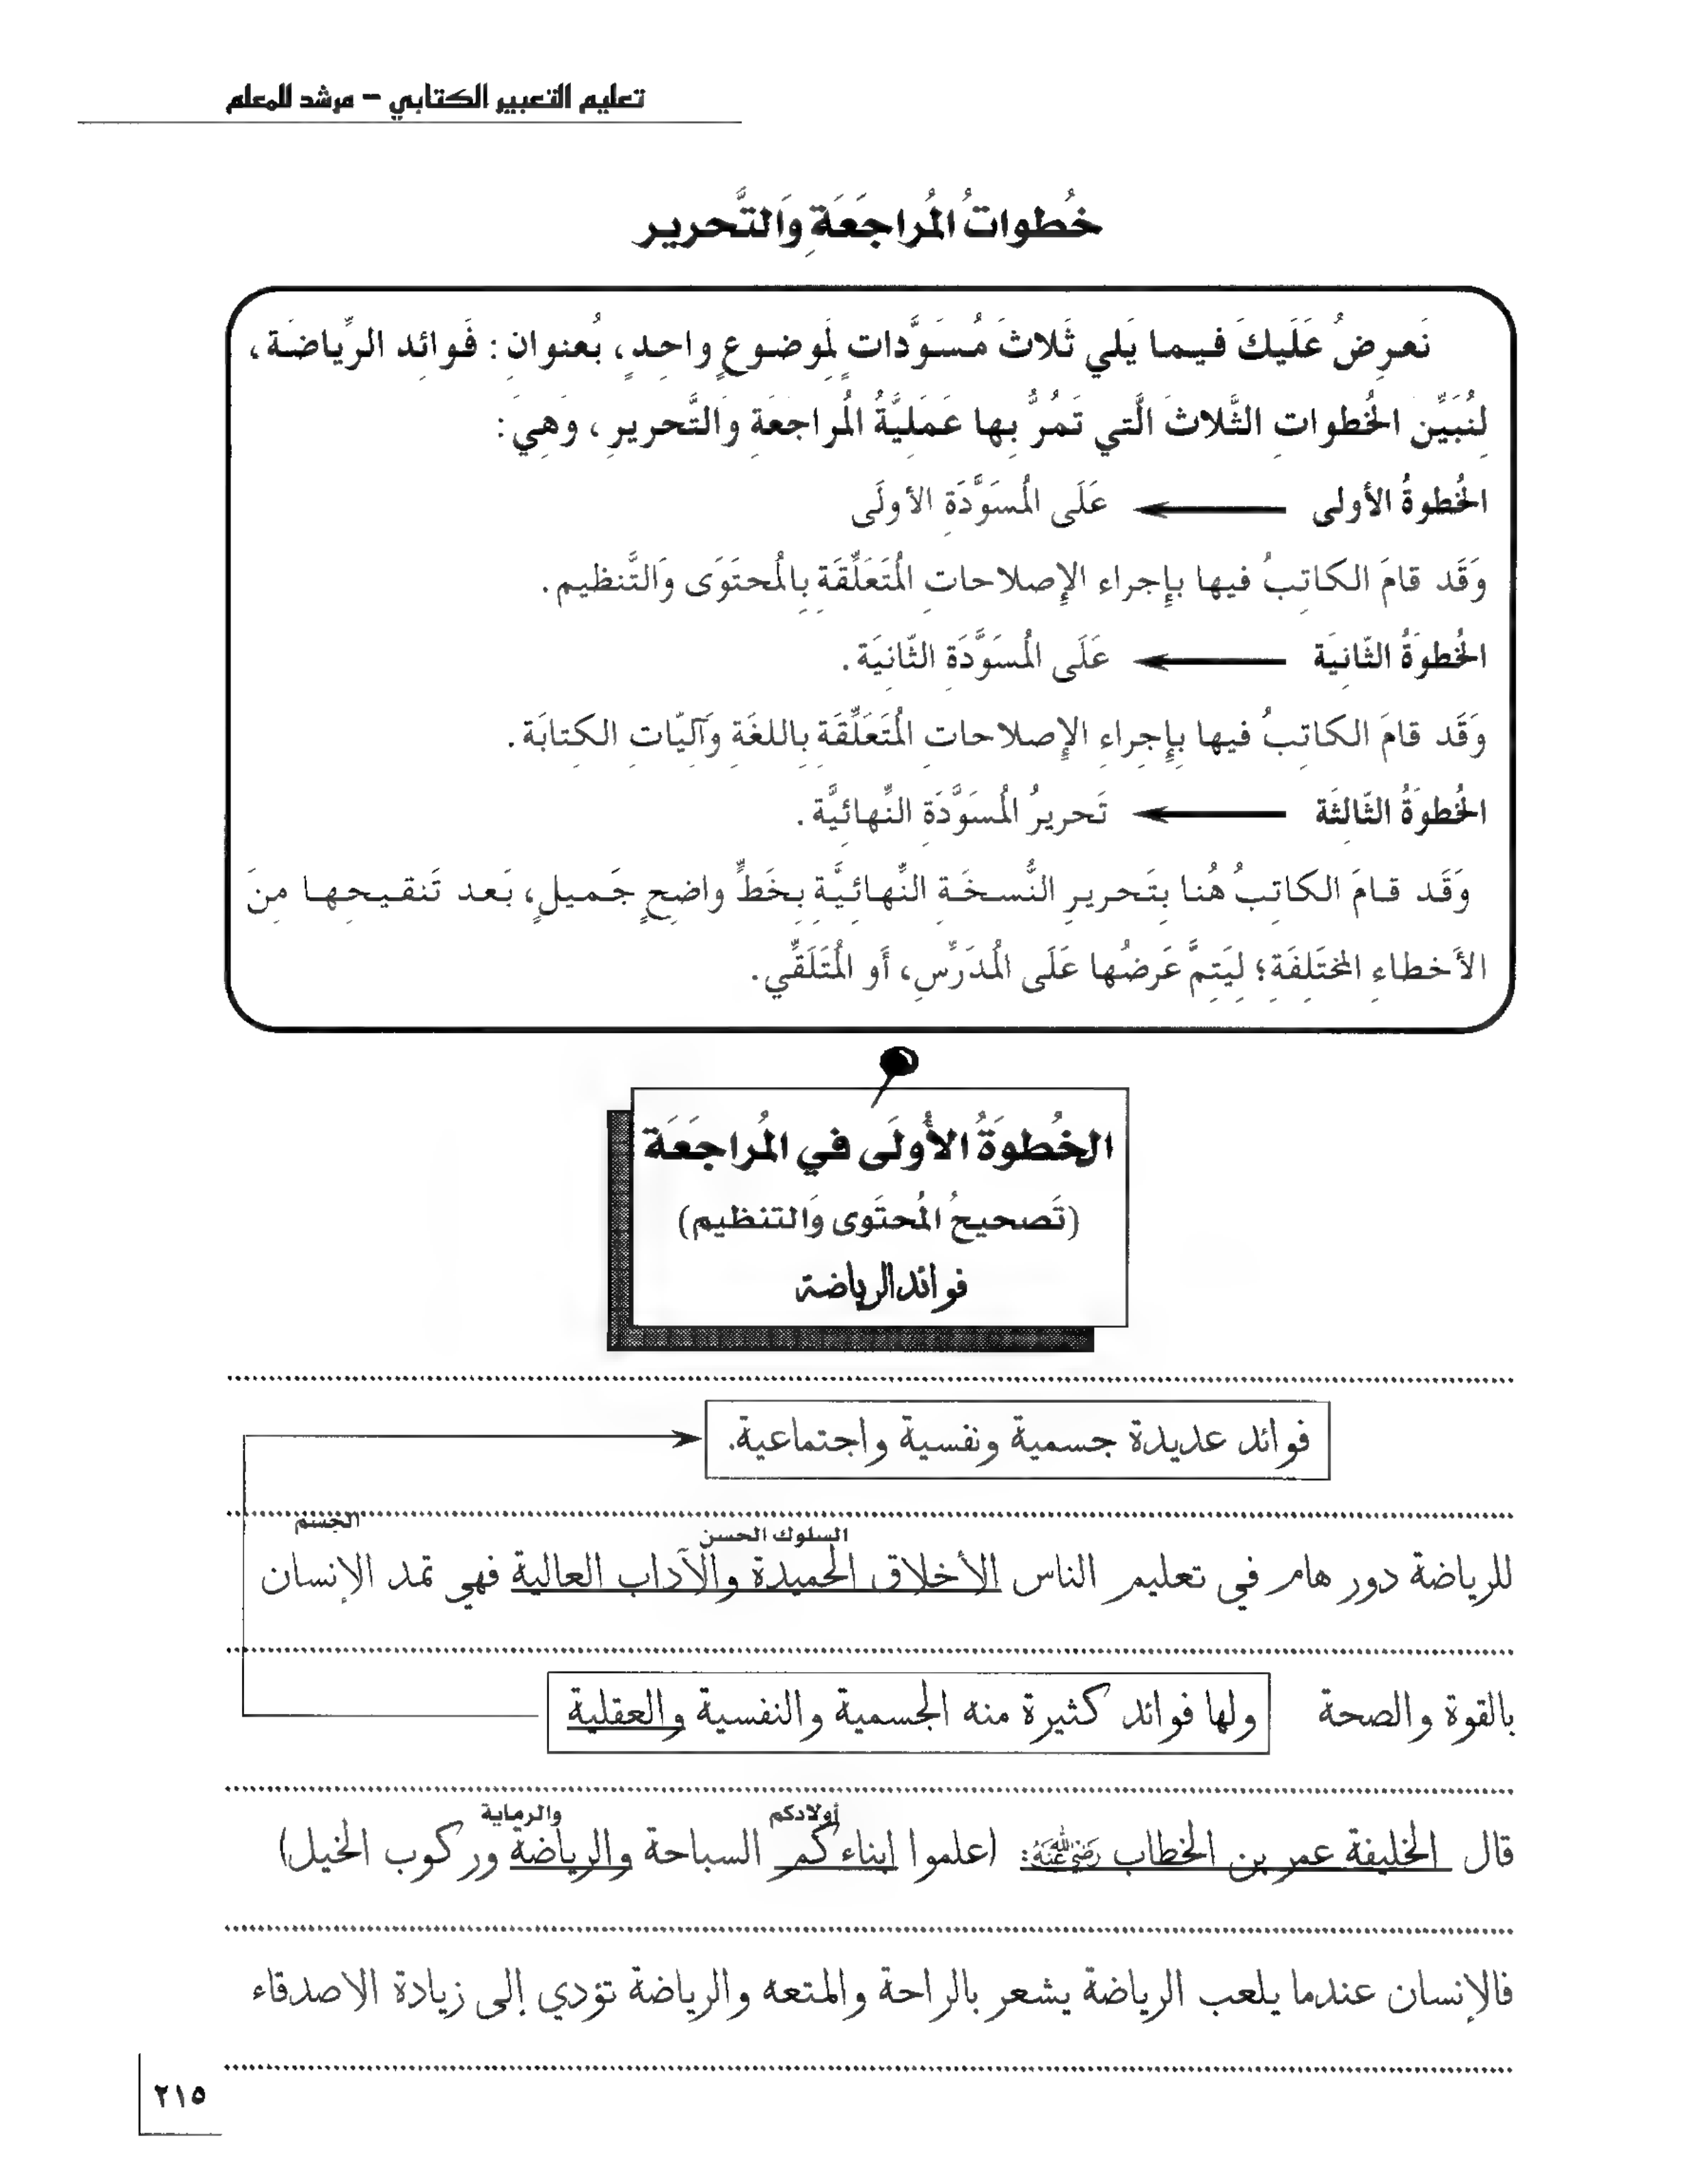 تعليم التعبير الكتابي – مرشد للمعلم
خُطواتُ المُراجَعَةِ وَالتَّحرير
نَعرِضُ عَلَيكَ فيما يَلي ثَلاثَ مُسَوَّداتٍ لِمَوضوعٍ واحِدٍ، بُعنوانِ: فَوائِد الرِّياضَة،
لِنُبَيِّن الخُطواتِ الثَّلاثَ الَّتي تَمُرُّ بِها عَمَلِيَّةُ المُراجعَةِ وَالتَّحريرِ، وَهِيَ:
الخُطوةُ الأولى ← عَلَى المُسَوَّدَةِ الأولَى
وَقَد قامَ الكاتِبُ فيها بإِجراء الإِصلاحاتِ المُتَعَلِّقَةِ بِالمُحتَوَى وَالتَّنظيم.
الخُطوَةُ الثّانِيَة ← عَلَى المُسَوَّدَةِ الثّانِيَة.
وَقَد قامَ الكاتِبُ فيها بِإِجراءِ الإِصلاحاتِ المُتَعَلِّقَةِ بِاللغَةِ وَآلِيّاتِ الكِتابَة.
الخُطوَةُ الثّالِثَة ← تَحريرُ المُسَوَّدَةِ النِّهائِيَّة.
وَقَد قامَ الكاتِبُ هُنا بِتَحريرِ النُّسخَةِ النِّهائِيَّةِ بِخَطٍّ واضِحٍ جَميلٍ، بَعد تَنقيحِها مِنَ
الأَخطاءِ المختَلِفَةِ؛ لِيَتِمَّ عَرضُها عَلَى المُدَرِّسِ، أَو المُتَلَقِّي.
الخُطوَةُ الأُولَى في المُراجَعَة
(تَصحيحُ المُحتَوى وَالتنظيم)
فوائد الرياضة
فوائد عديدة جسمية ونفسية واجتماعية.
السلوك الحسن الجسم
للرياضة دور هام في تعليم الناس الأخلاق الحميدة والآداب العالية فهي تمد الإنسان
بالقوة والصحة ولها فوائد كثيرة منه الجسمية والنفسية والعقلية
أولادكم والرماية
قال الخليفة عمر بن الخطاب رَضِيَ اللهُ عَنْهُ: (علموا ابناءكم السباحة والرياضة وركوب الخيل)
فالإنسان عندما يلعب الرياضة يشعر بالراحة والمتعه والرياضة تؤدي إلى زيادة الاصدقاء
٢١٥